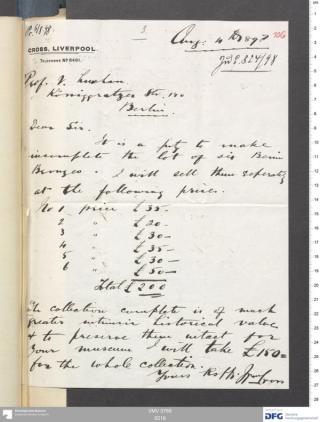 3
CROSS, LIVERPOOL.
TELEPHONE No 6491.
Aug. 4th 1898
106
Prof. V. Luschan
Königgratzer Str. 120
Berlin.
Dear Sir.
It is a pity to make
incomplete the lot of six Benin
Bronzes. I will sell them seperately
at the following prices.
No 1 price £35-
2 " £20-
3 " £30-
4 " £35-
5 " £30-
6 " £50-
Total £200
The collection complete is of much
greater intrinsic historical value
& to preserve them intact for
your museum I will take £150=
for the whole collection.
Yours
VMV 3766
0216
DFG